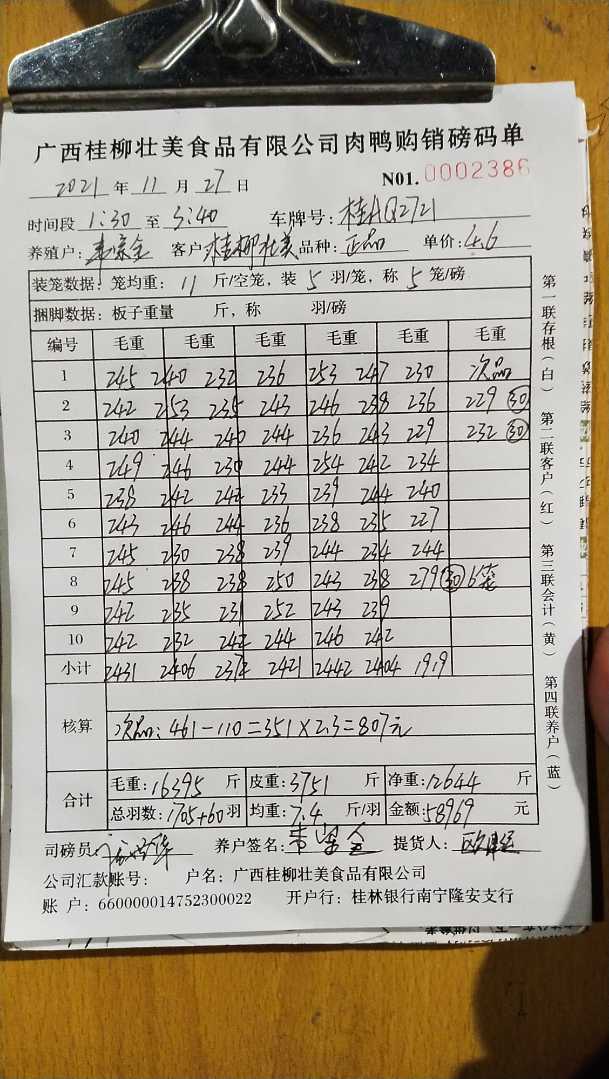 广西桂柳壮美食品有限公司肉鸭购销磅码单
2021 年 11 月 27 日 N01. 0002386
时间段 1:30 至 3:40 车牌号: 桂AQ2721
养殖户: 韦 金 客户 桂柳壮美 品种: 正品 单价: 4.6
装笼数据: 笼均重: 11 斤/空笼, 装 5 羽/笼, 称 5 笼/磅
捆脚数据: 板子重量 斤, 称 羽/磅
编号 毛重 毛重 毛重 毛重 毛重 毛重
1 245 240 232 236 253 247 230 次品
2 242 253 235 243 246 238 236 229 30
3 240 244 240 244 236 243 229 232 30
4 249 246 230 244 254 242 234
5 238 242 242 233 239 244 240
6 243 246 244 236 238 235 227
7 245 230 238 239 244 234 244
8 245 238 238 250 243 238 279 30 6笼
9 242 235 231 252 243 239
10 242 232 242 244 246 242
小计 2431 2406 2372 2421 2442 2404 1919
核算 次品: 461-110=351×2.3=807元
合计 毛重: 16395 斤 皮重: 3751 斤 净重: 12644 斤
总羽数: 1705+60 羽 均重: 7.4 斤/羽 金额: 58969 元
司磅员 养户签名: 韦 金 提货人:
公司汇款账号: 户名: 广西桂柳壮美食品有限公司
账 户: 660000014752300022 开户行: 桂林银行南宁隆安支行
第一联存根(白) 第二联客户(红) 第三联会计(黄) 第四联养户(蓝)